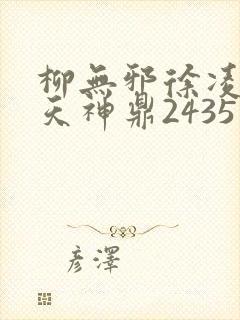 柳無邪徐凌
天神鼎2435
彥澤